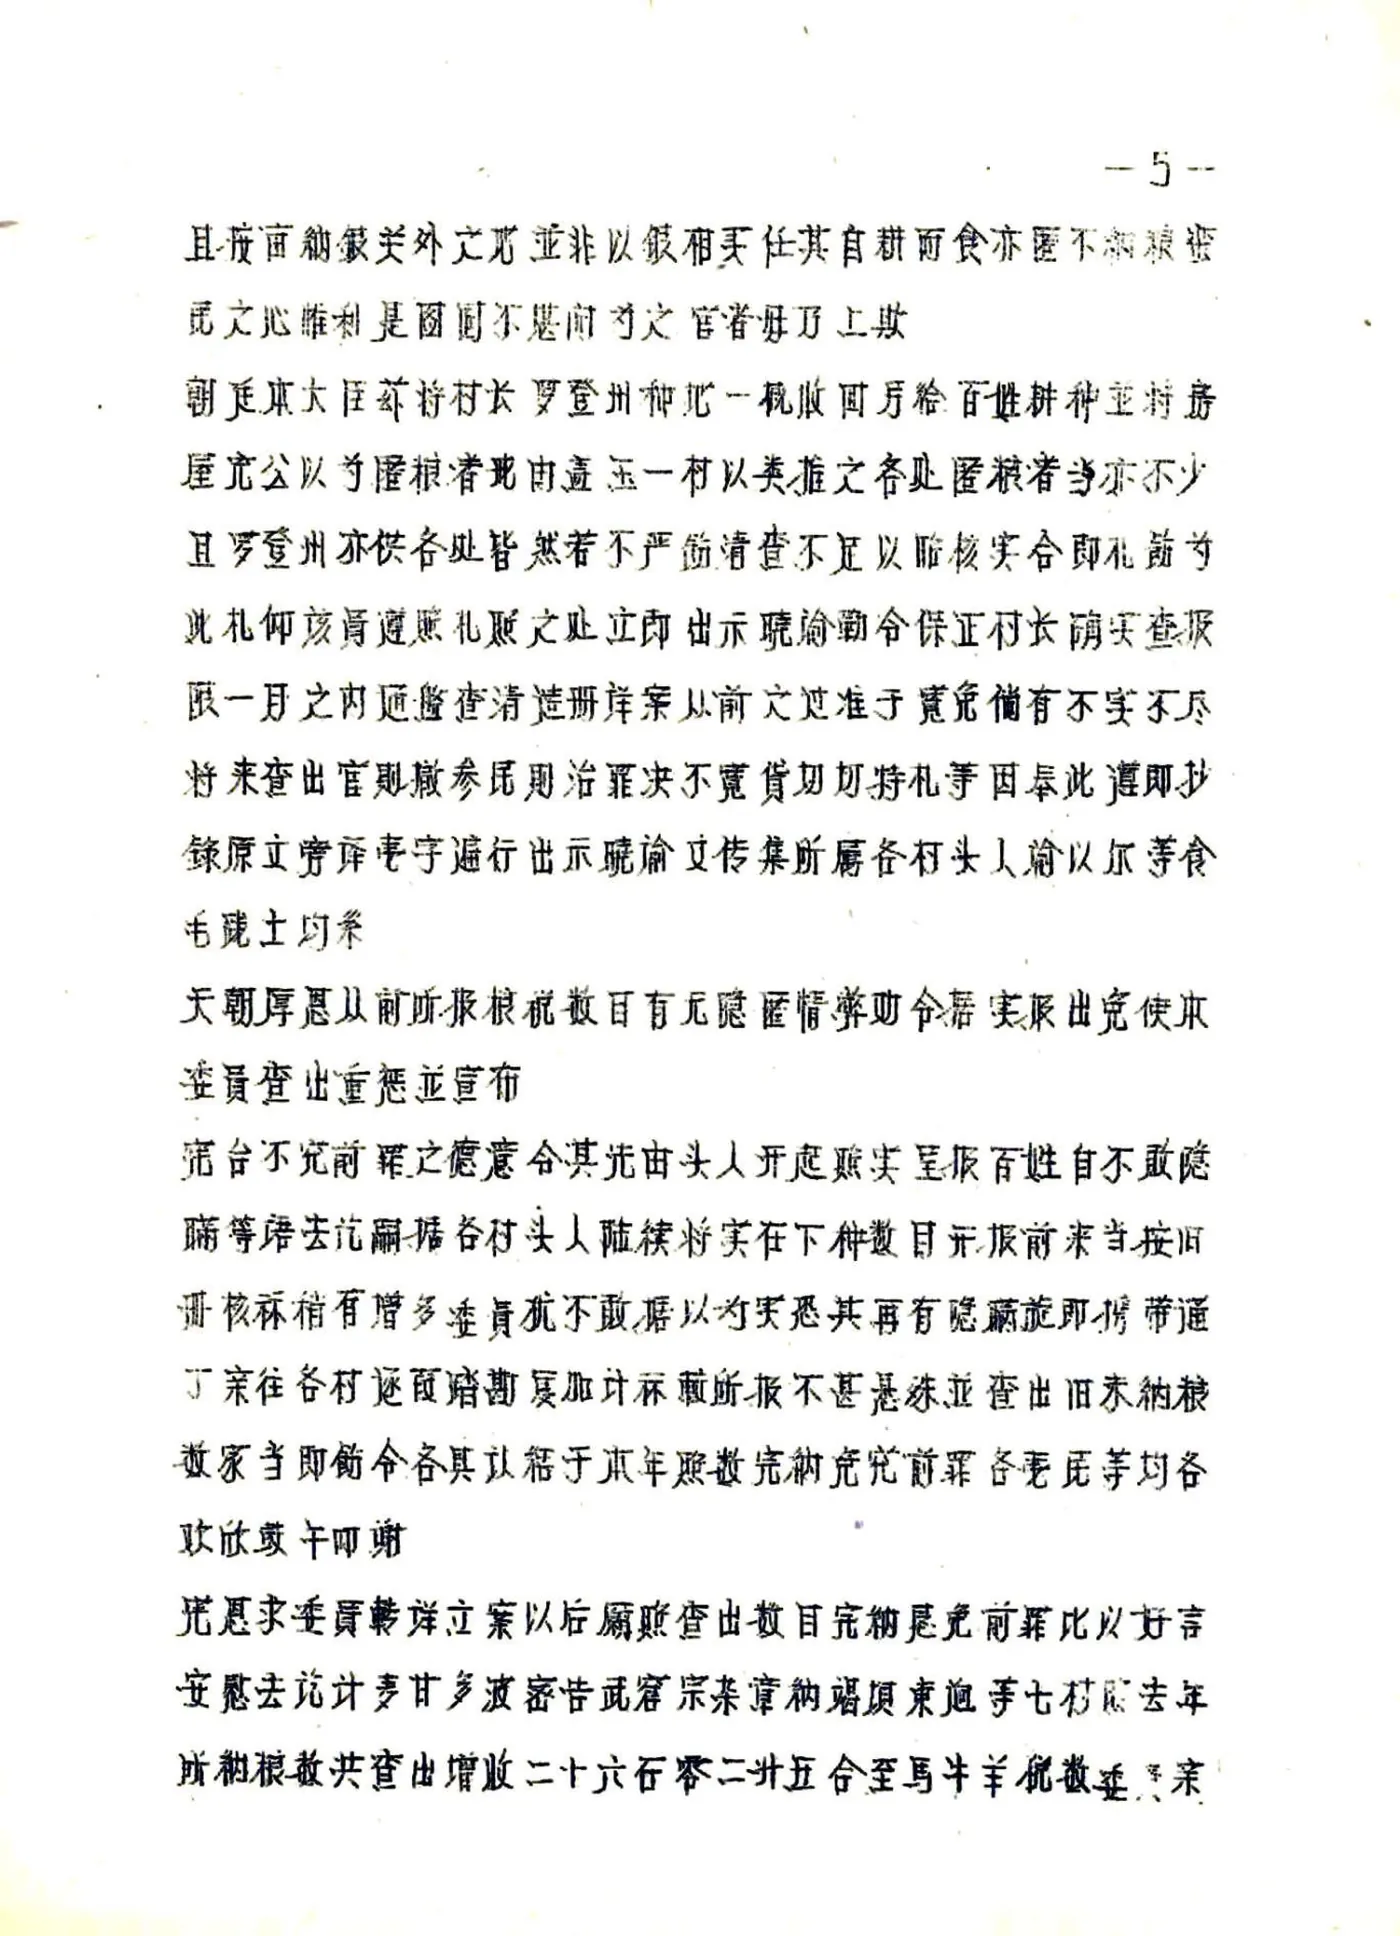 —5—
且按亩纳银关外之地並非以银相买任其自耕而食亦匿不纳粮蛮
民之心唯利是图问不堪问为之官者毋乃上欺
朝廷本大臣亦将村长罗登州种地一概收回另给百姓耕种並将房
屋充公以为匿粮者戒由盖玉一村以类推之各处匿粮者当亦不少
且罗登州亦供各处皆然若不严饬清查不足以昭核实合即札饬为
此札仰该员遵照札照之处立即出示晓谕勒令保正村长确实查报
限一月之内通盘查清造册详案从前之过准于宽免倘有不实不尽
将来查出官则撤参民则治罪决不宽贷切切特札等因奉此遵即抄
录原文旁译夷字遍行出示晓谕又传集所属各村头人谕以尔等食
毛践土均系
天朝厚恩从前所报粮税数目有无隐匿情弊勒令据实报出免使本
委员查出重惩並宣布
宪台不究前罪之德意令其先由头人开廷照实呈报百姓自不敢隐
瞒等语去讫嗣据各村头人陆续将实在下种数目开报前来当按旧
册核算稍有增多委员犹不敢据以为实恐其再有隐瞒旋即携带通
丁亲往各村逐亩踏勘复加计算较所报不甚悬殊並查出旧未纳粮
数家当即饬令各具认结于本年照数完纳免究前罪各夷民等均各
欢欣鼓午叩谢
宪恩求委员转详立案以后愿照查出数目完纳恳免前罪比以好言
安慰去讫计麦甘多波密告武窘宗杂章纳竭项东迥等七村照去年
所纳粮数共查出增收二十六石零二升五合至马牛羊税数委员亲